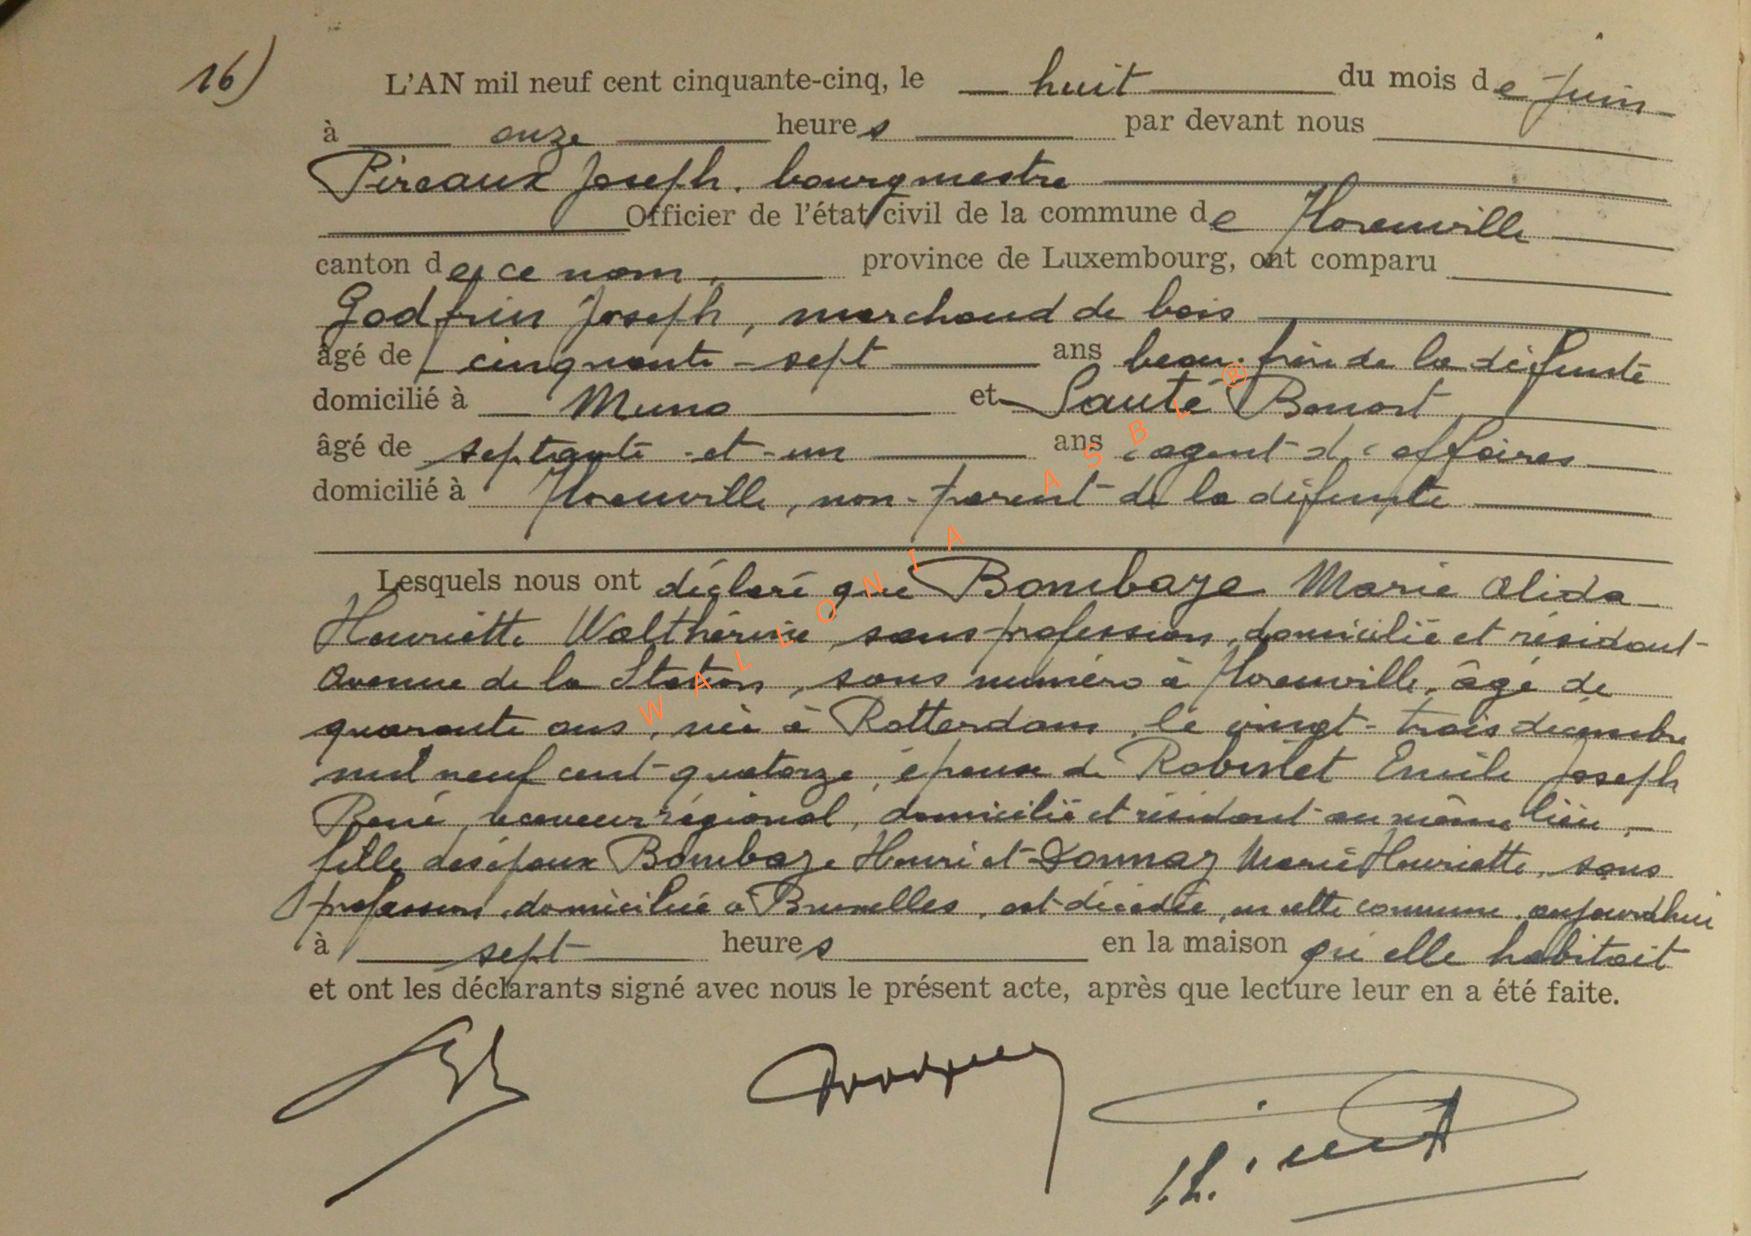 16)
L'AN mil neuf cent cinquante-cinq, le huit du mois de Juin
à onze heures par devant nous
Pireaux Joseph, bourgmestre
Officier de l'état civil de la commune de Florenville
canton de ce nom, province de Luxembourg, ont comparu
Godfrin Joseph, marchand de bois
âgé de cinquante-sept ans beau-frère de la défunte
domicilié à Muno et
âgé de septante-et-un ans agent d'affaires
domicilié à Florenville, non-parent de la défunte
Lesquels nous ont déclaré que Bombaze Marie Alida
Henriette Walthérine, sans profession, domiciliée et résidant
Avenue de la Station, sans numéro à Florenville, âgé de
quarante ans, née à Rotterdam, le vingt-trois décembre
mil neuf cent-quatorze, épouse de Robinet Emile Joseph
René, receveur régional, domicilié et résidant au même lieu,
fille des époux Bombaze Henri et Donnay Marie Henriette, sans
profession, domiciliée à Bruxelles, est décédée, en cette commune, aujourd'hui
à sept heures en la maison qu'elle habitait
et ont les déclarants signé avec nous le présent acte, après que lecture leur en a été faite.
WALLONIA ASBL ®